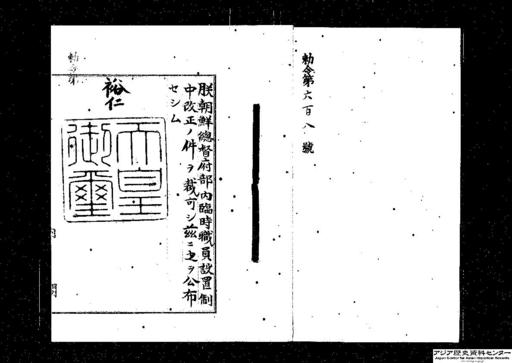 勅令第六百八號
朕朝鮮總督府部內臨時職員設置制
中改正ノ件ヲ裁可シ茲ニ之ヲ公布
セシム
裕仁
天皇
御璽
勅令第
內
閣
アジア歴史資料センター
Japan Center for Asian Historical Records